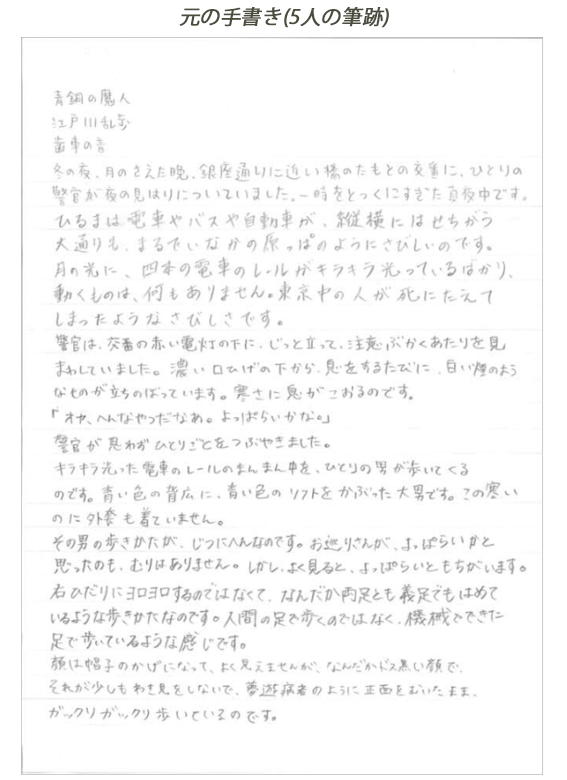 元の手書き(5人の筆跡)
青銅の魔人
江戸川乱歩
歯車の音
冬の夜、月のさえた晩、銀座通りに近い橋のたもとの交番に、ひとりの
警官が夜の見はりについていました。一時をとっくにすぎた真夜中です。
ひるまは電車やバスや自動車が、縦横にはせちがう
大通りも、まるでいなかの原っぱのようにさびしいのです。
月の光に、四本の電車のレールがキラキラ光っているばかり、
動くものは、何もありません。東京中の人が死にたえて
しまったようなさびしさです。
警官は、交番の赤い電灯の下に、じっと立って、注意ぶかくあたりを見
まわしていました。濃い口ひげの下から、息をするたびに、白い煙のよう
なものが立ちのぼっています。寒さに息がこおるのです。
「オヤ、へんなやつだなあ。よっぱらいかな。」
警官が思わずひとりごとをつぶやきました。
キラキラ光った電車のレールのまんまん中を、ひとりの男が歩いてくる
のです。青い色の背広に、青い色のソフトをかぶった大男です。この寒い
のに外套も着ていません。
その男の歩きかたが、じつにへんなのです。お巡りさんが、よっぱらいかと
思ったのも、むりはありません。しかし、よく見ると、よっぱらいともちがいます。
右ひだりにヨロヨロするのではなくて、なんだか両足とも義足でもはめて
いるような歩きかたなのです。人間の足で歩くのではなく、機械でできた
足で歩いているような感じです。
顔は帽子のかげになって、よく見えませんが、なんだかドス黒い顔で、
それが少しもわき見をしないで、夢遊病者のように正面をむいたまま、
ガックリガックリ歩いているのです。